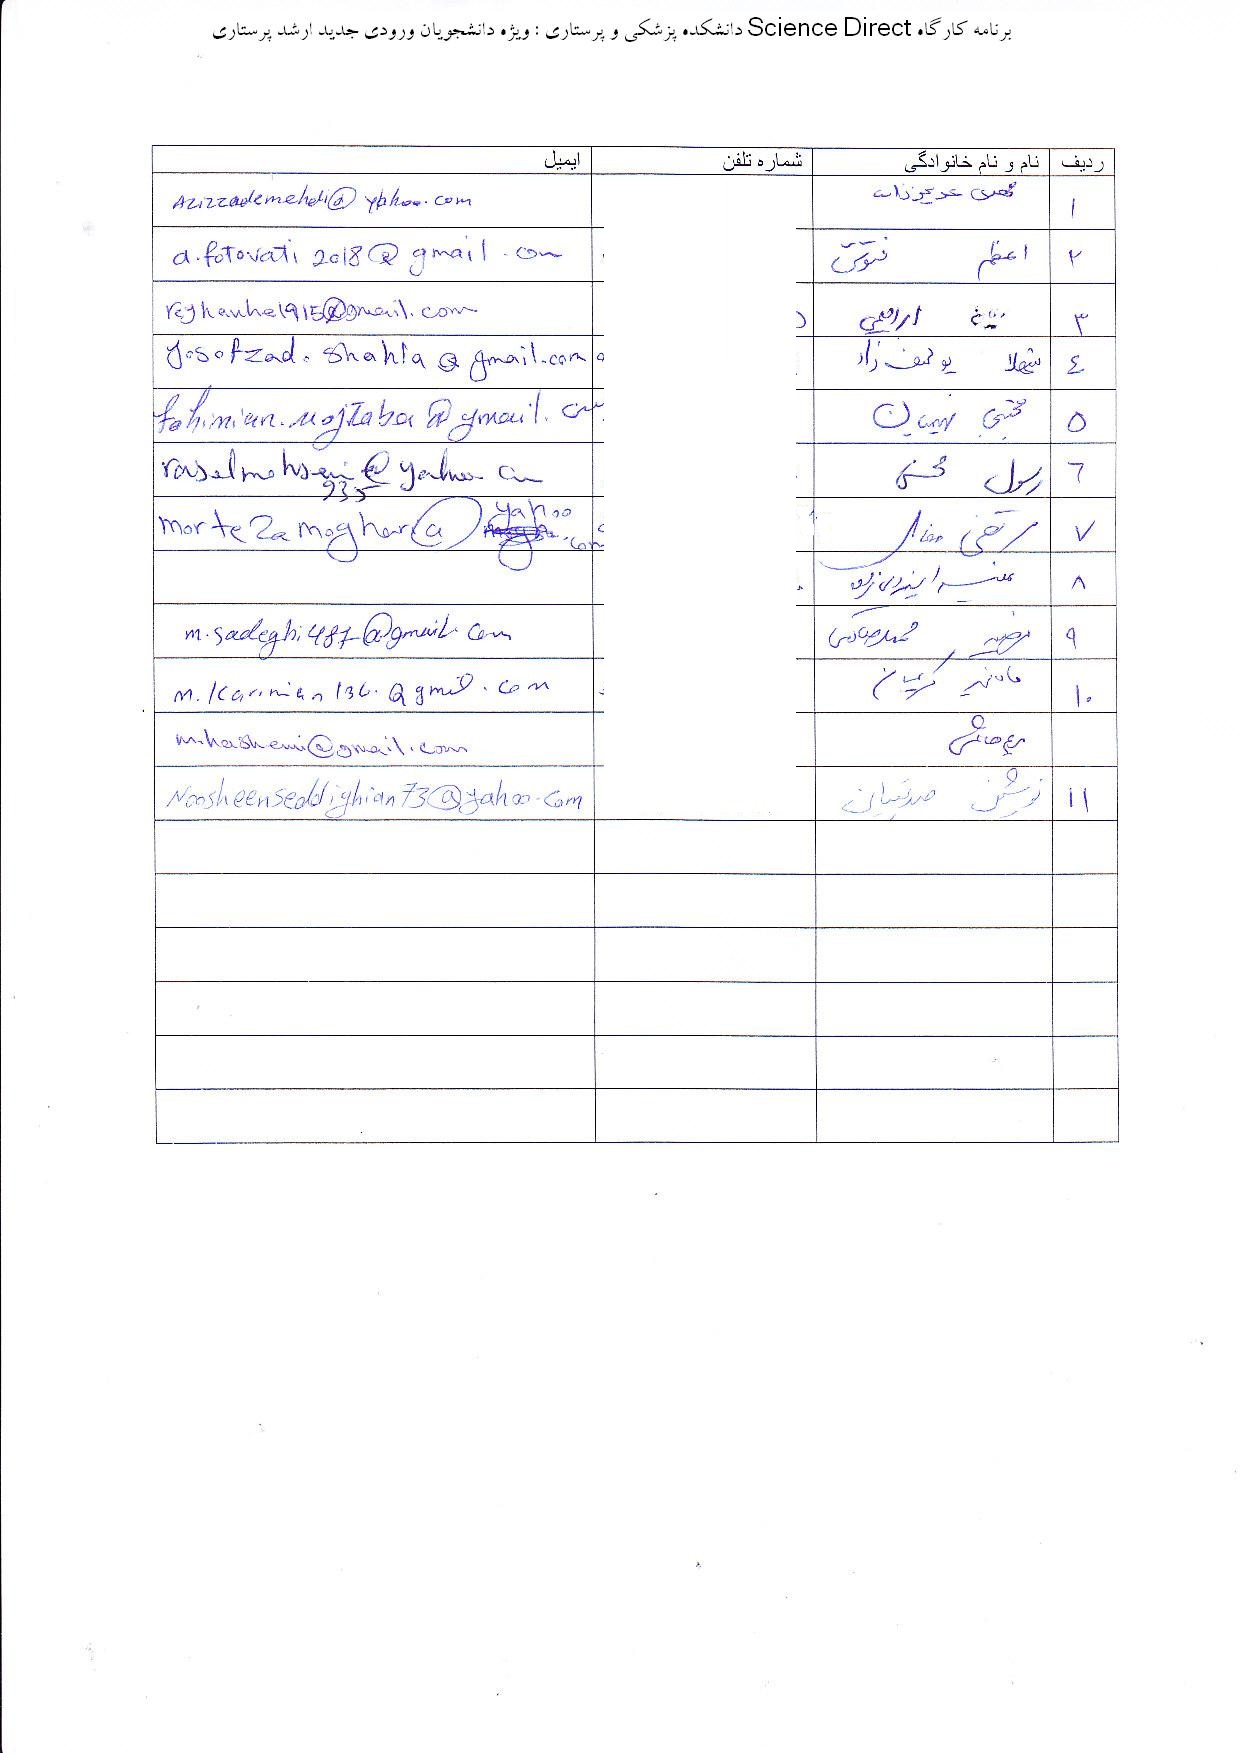 برنامه کارگاه Science Direct دانشکده پزشکی و پرستاری : ویژه دانشجویان ورودی جدید ارشد پرستاری
ردیف نام و نام خانوادگی شماره تلفن ایمیل
۱ Azizzademehdi@yahoo.com
۲ اعظم فتوتی a.fotovati2018@gmail.com
۳ ابراهیمی reyhanhe1915@gmail.com
٤ شهلا یوسف زاد yosofzad.shahla@gmail.com
۵ مجتبی فهیمیان fahimian.mojtaba@gmail.com
٦ رسول محسنی rasolmohseni935@yahoo.com
۷ مرتضی mortezamoghar@yahoo.com
۸
۹ مرضیه محمدصادقی m.sadeghi487@gmail.com
۱۰ کریمیان m.karimian136.@gmil.com
مریم هاشمی m.hashemi@gmail.com
۱۱ نوشین صدیقیان Noosheenseddighian73@yahoo.com